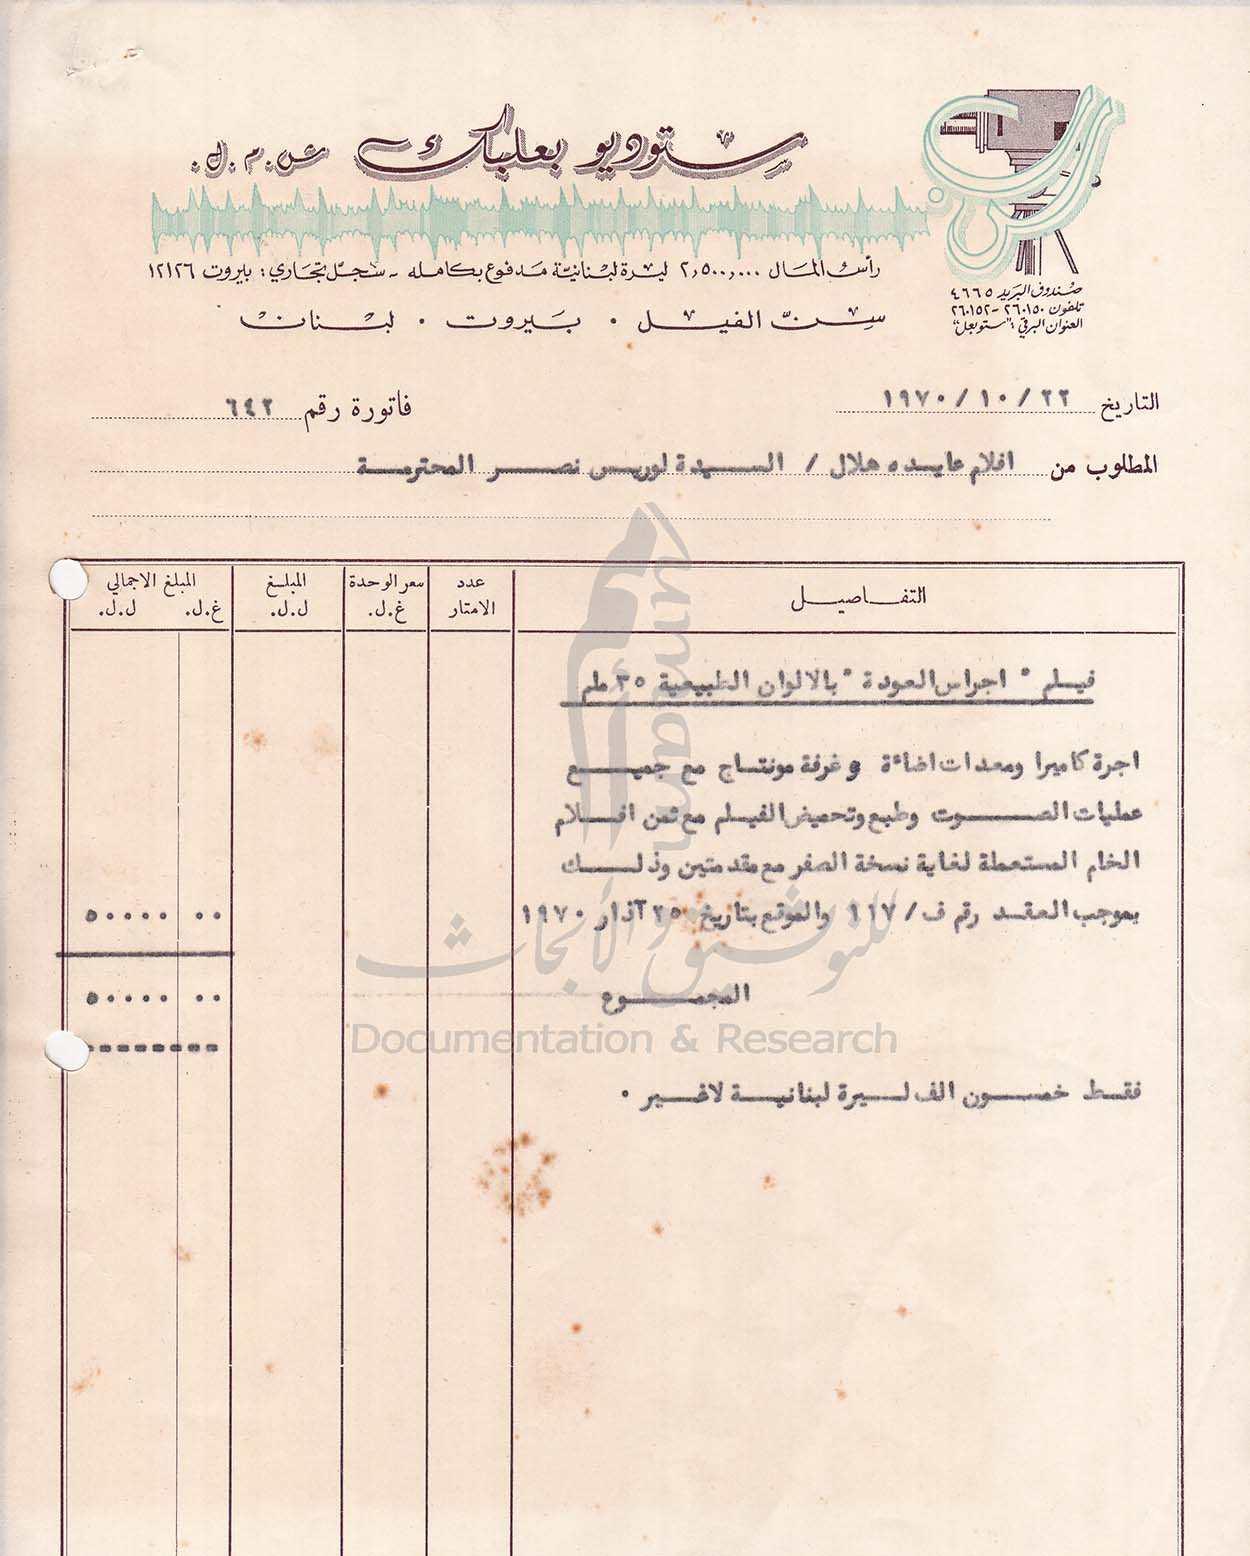 ستوديو بعلبك ش.م.ل.
رأس المال ٢,٥٠٠,٠٠٠ ليرة لبنانية مدفوع بكامله - سجل تجاري: بيروت ١٢١٢٦
سن الفيل . بيروت . لبنان
صندوق البريد ٤٦٦٥
تلفون ٢٦٠١٥٠ - ٢٦٠١٥٢
العنوان البرقي: "ستوبعل"
التاريخ ٢٢ / ١٠ / ١٩٧٠
فاتورة رقم ٦٤٢
المطلوب من افلام عايده هلال / السيدة لوريس نصر المحترمة
التفاصيل
عدد الامتار
سعر الوحدة غ.ل.
المبلغ ل.ل.
المبلغ الاجمالي غ.ل. ل.ل.
فيلم " اجراس العودة " بالالوان الطبيعية ٣٥ ملم
اجرة كاميرا ومعدات اضاءة و غرفة مونتاج مع جميع
عمليات الصوت وطبع وتحميض الفيلم مع ثمن افلام
الخام المستعملة لغاية نسخة الصفر مع مقدمتين وذلك
بموجب العقد رقم ف/ ١١٧ والموقع بتاريخ ٢٥ آذار ١٩٧٠ ٠٠ ٥٠٠٠٠
المجموع ٠٠ ٥٠٠٠٠
فقط خمسون الف ليرة لبنانية لاغير .
umam
للتوثيق والأبحاث
Documentation & Research